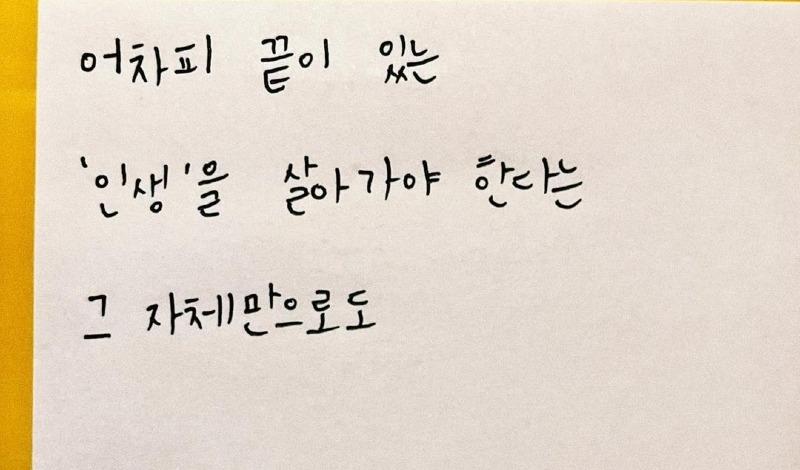 어차피 끝이 있는
'인생'을 살아가야 한다는
그 자체만으로도